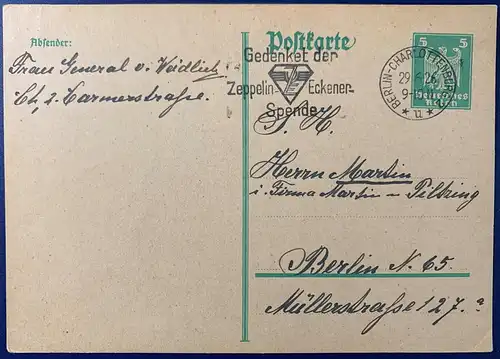 Absender:
Frau General v. Weidlich
Ch, 2. Carmerstraße.
Postkarte
Gedenket der
Zeppelin-Eckener-
Spende
BERLIN-CHARLOTTENBURG
9-10
* u *
5 5
Deutsches
Reich
S. H.
Herrn Martin
i. Firma Martin u Piltzing
Berlin N. 65.
Müllerstraße 127. a